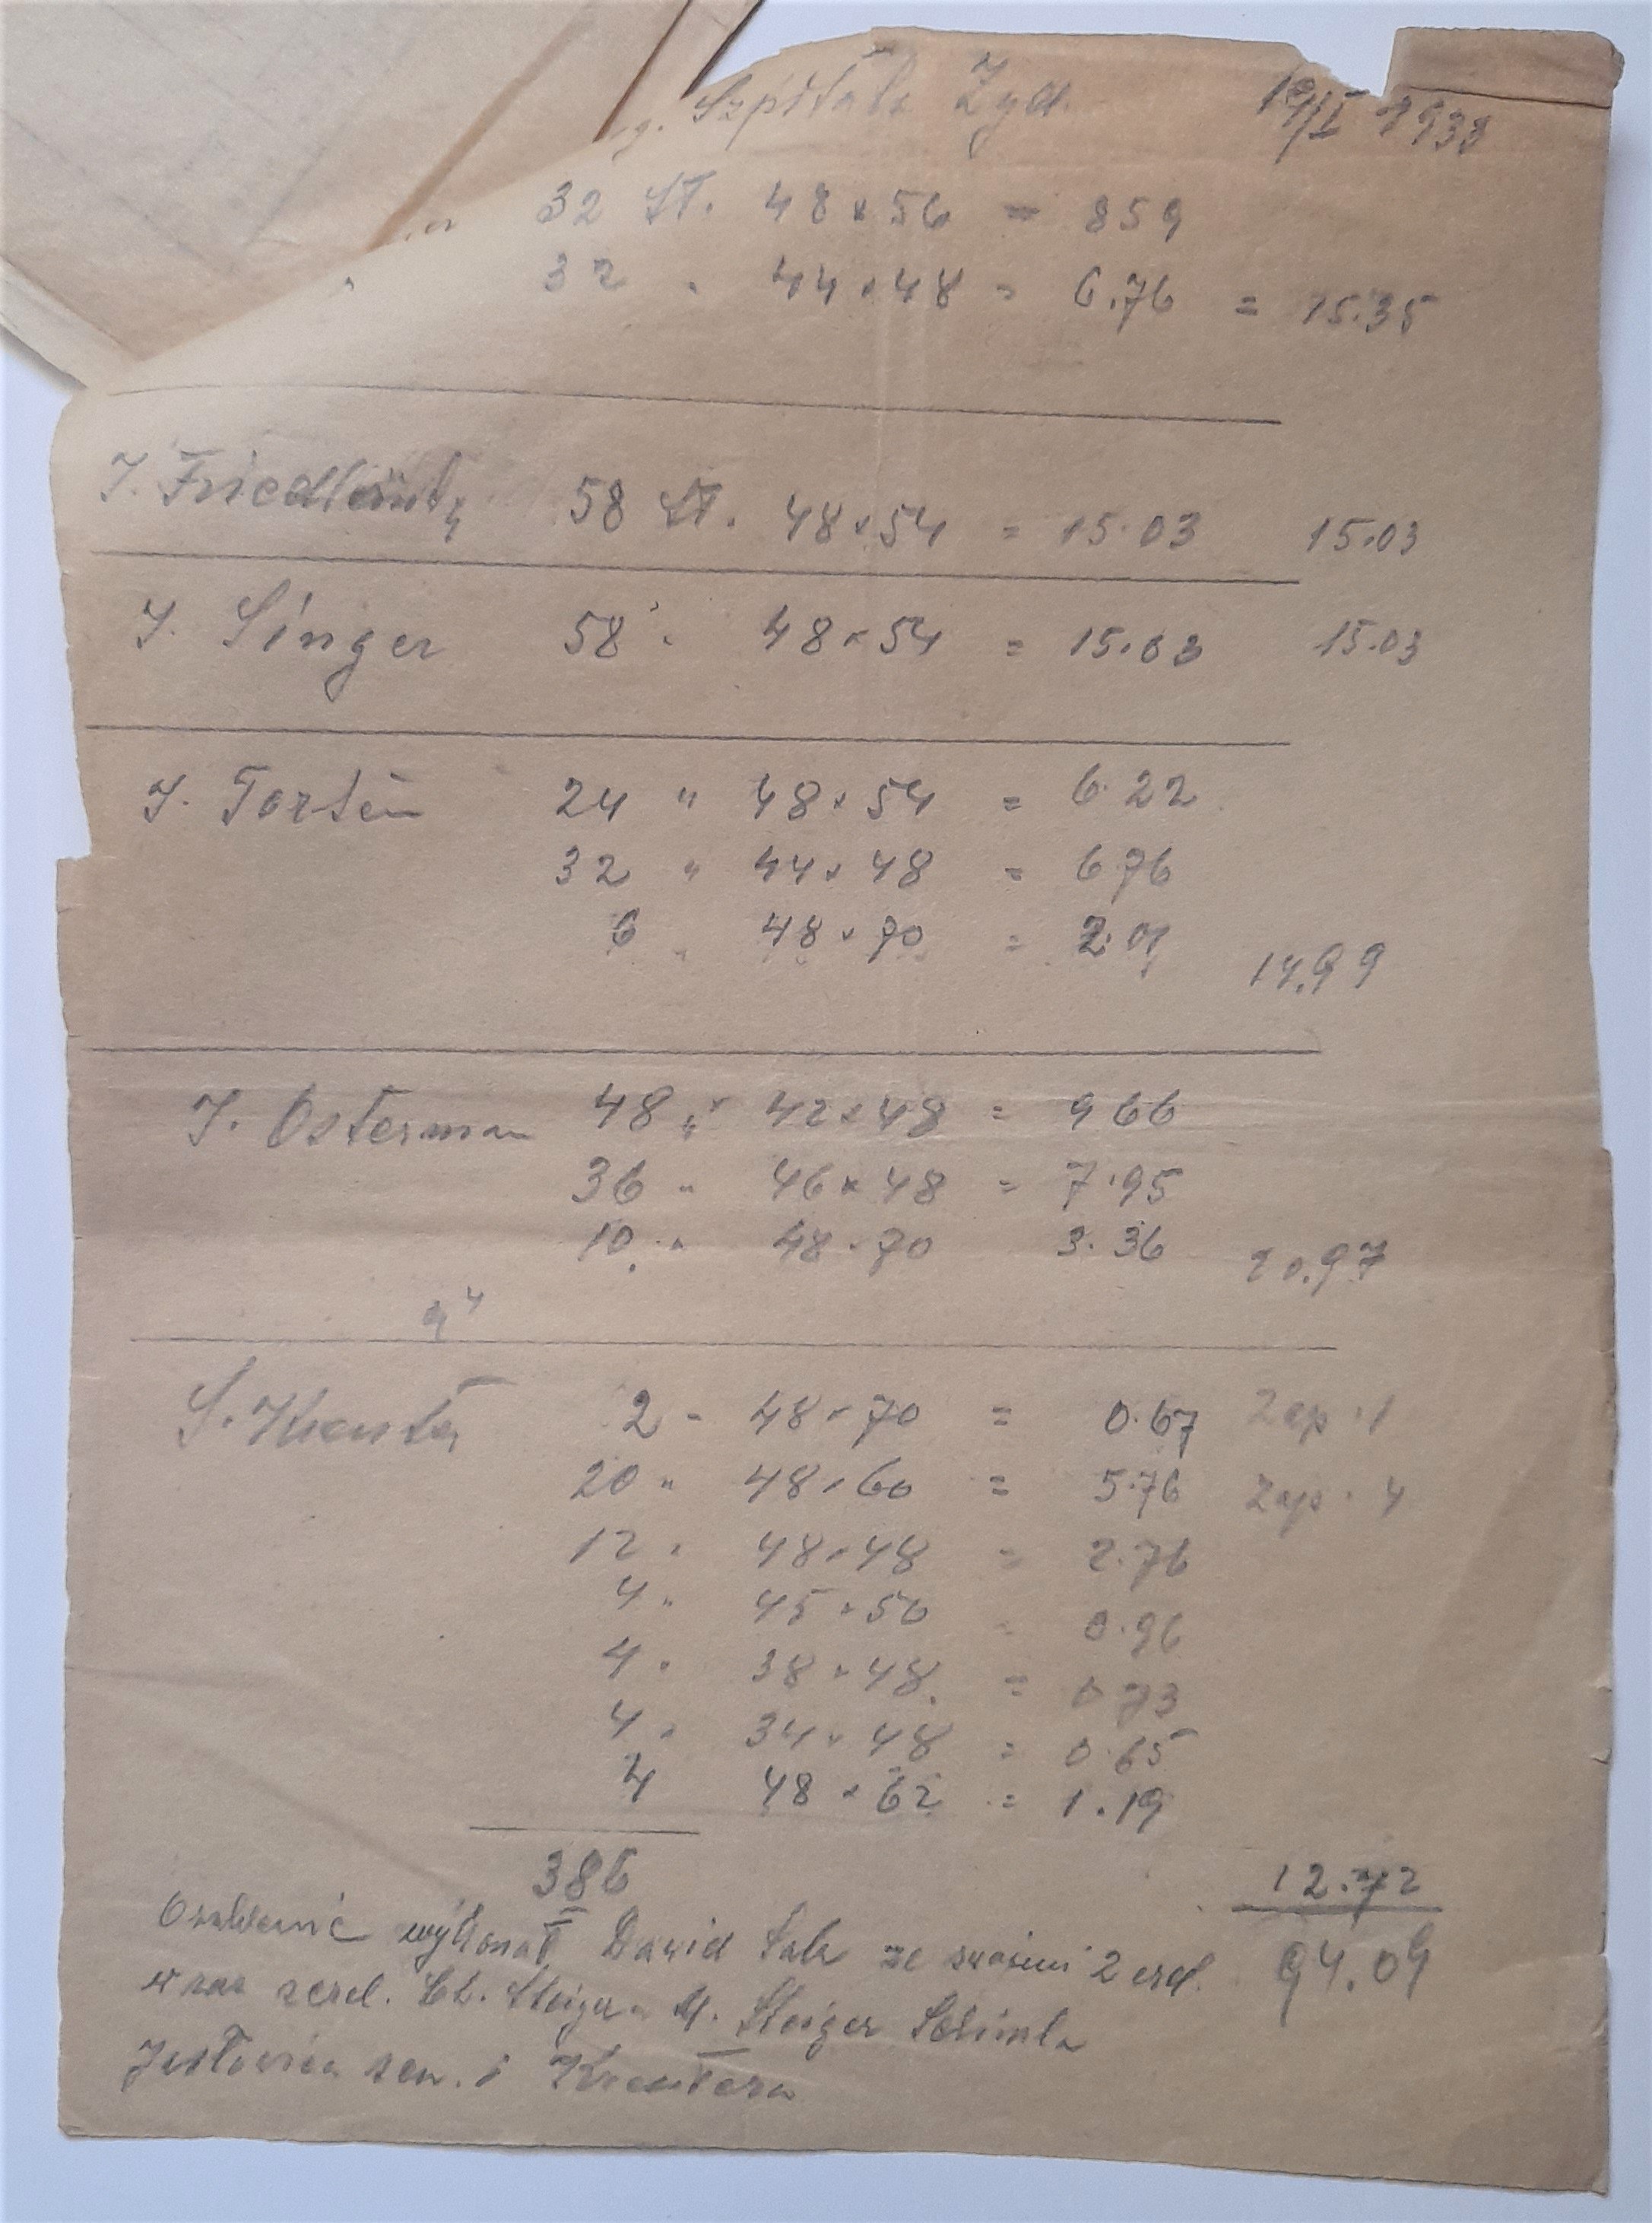 Szpitala Żyd. 19/I 1933
32 St. 48 x 56 = 859
32 " 44 x 48 = 6.76 = 15.35
J. 58 St. 48 x 54 = 15.03 15.03
J. Singer 58 " 48 x 54 = 15.03 15.03
J. 24 " 48 x 54 = 6.22
32 " 44 x 48 = 676
6 " 48 x 70 = 2.01
14.99
J. Osterman 48 " 42 x 48 = 966
36 " 46 x 48 = 7.95
10 " 48 - 70 3.36
20.97
S. 2 - 48 x 70 = 0.67 Zap. 1
20 " 48 x 60 = 5.76 Zap. 4
12 " 48 x 48 = 2.76
4 " 45 x 50 0.96
4 " 38 x 48 = 0.73
4 " 34 x 48 = 0.65
4 48 x 62 = 1.19
386 12.72
wykonał Dawid ze swoimi 2 94.09
Ch. M. Steiger
sen. i